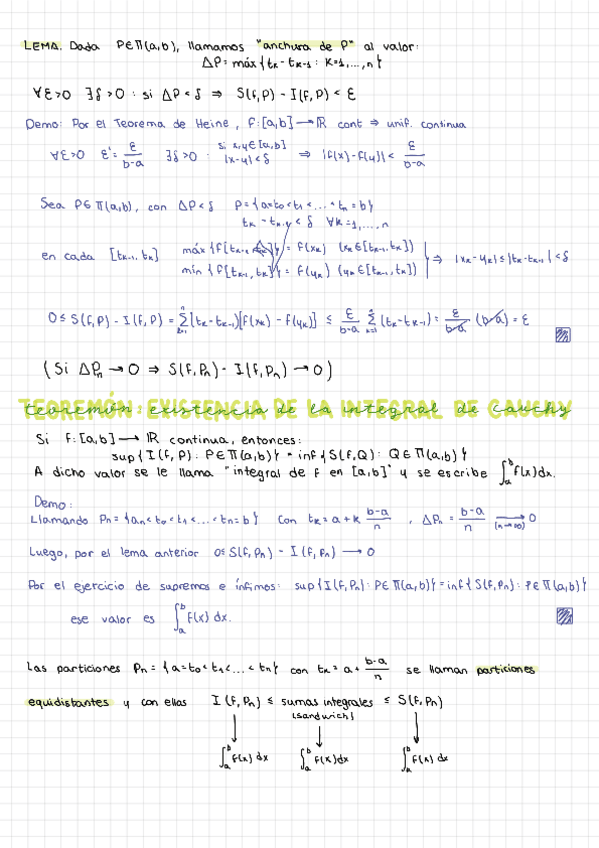 LEMA. Dada P∈Π(a,b), llamamos "anchura de P" al valor:
ΔP = máx{tₖ - tₖ₋₁ : K=1,...,n}
∀ε>0 ∃δ>0 : si ΔP<δ ⇒ S(f,P) - I(f,P) < ε
Demo: Por el Teorema de Heine, f:[a,b]→ℝ cont ⇒ unif. continua
∀ε>0 ε' = ε/(b-a) ∃δ>0 : si x,y∈[a,b] |x-y|<δ ⇒ |f(x)-f(y)| < ε/(b-a)
Sea P∈Π(a,b), con ΔP<δ P={a=t₀<t₁<...<tₙ=b}
tₖ - tₖ₋₁ < δ ∀K=1,...,n
en cada [tₖ₋₁, tₖ] máx{f[tₖ₋₁, tₖ]} = f(xₖ) (xₖ∈[tₖ₋₁,tₖ])
mín{f[tₖ₋₁, tₖ]} = f(yₖ) (yₖ∈[tₖ₋₁,tₖ]) ⇒ |xₖ-yₖ| ≤ |tₖ-tₖ₋₁| < δ
0 ≤ S(f,P) - I(f,P) = Σₖ₌₁ⁿ [tₖ-tₖ₋₁][f(xₖ) - f(yₖ)] ≤ ε/(b-a) Σₖ₌₁ⁿ (tₖ-tₖ₋₁) = ε/(b-a) (b-a) = ε
(Si ΔPₙ → 0 ⇒ S(f,Pₙ) - I(f,Pₙ) → 0)
TEOREMÓN: EXISTENCIA DE LA INTEGRAL DE CAUCHY
Si f:[a,b]→ℝ continua, entonces:
sup{I(f,P) : P∈Π(a,b)} = inf{S(f,Q) : Q∈Π(a,b)}
A dicho valor se le llama "integral de f en [a,b]" y se escribe ∫ₐᵇ f(x)dx.
Demo:
Llamando Pₙ={a<t₀<t₁<...<tₙ=b} con tₖ = a+k (b-a)/n , ΔPₙ = (b-a)/n → 0 (n→∞)
Luego, por el lema anterior 0≤S(f,Pₙ) - I(f,Pₙ) → 0
Por el ejercicio de supremos e ínfimos: sup{I(f,Pₙ) : P∈Π(a,b)} = inf{S(f,Pₙ) : P∈Π(a,b)}
ese valor es ∫ₐᵇ f(x) dx.
Las particiones Pₙ = {a=t₀<t₁<...<tₙ} con tₖ = a+ (b-a)/n se llaman particiones
equidistantes y con ellas I(f,Pₙ) ≤ sumas integrales ≤ S(f,Pₙ)
(sandwich)
∫ₐᵇ f(x) dx ∫ₐᵇ f(x)dx ∫ₐᵇ f(x) dx